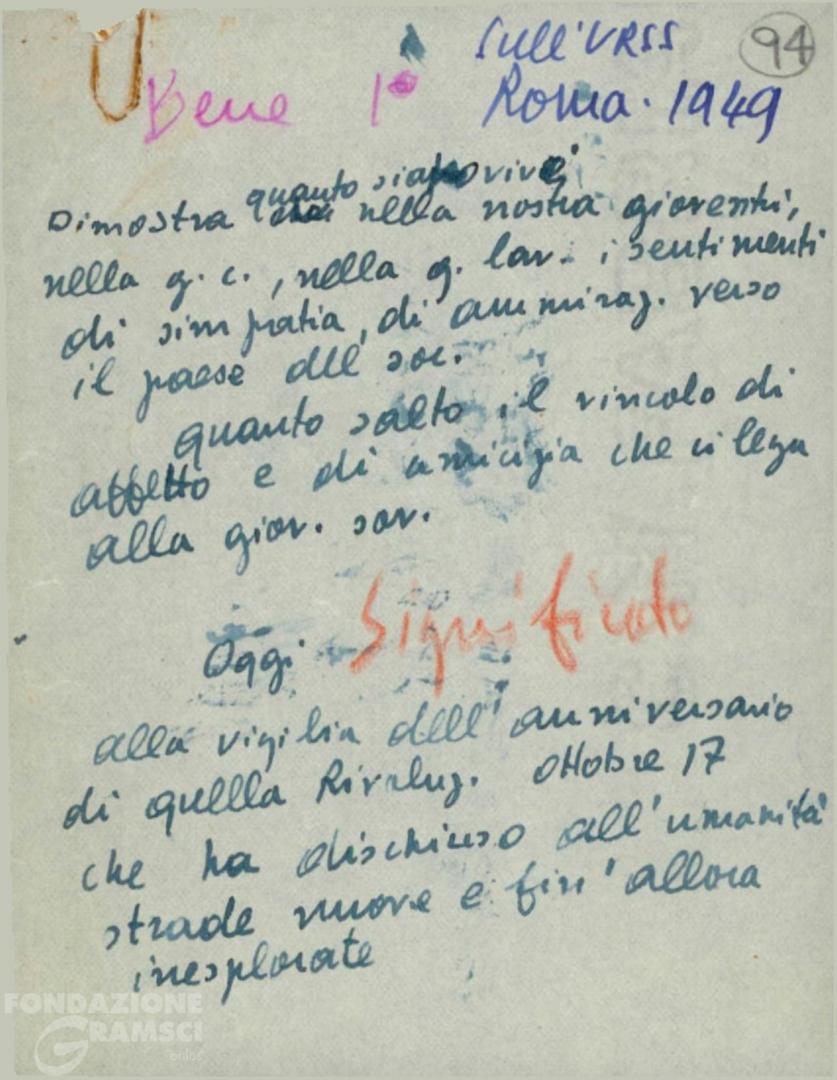 Sull'URSS 94
Bene 1° Roma. 1949
quanto siano vivi
Dimostra nella nostra gioventù,
nella g. c., nella g. lav. i sentimenti
di simpatia, di ammiraz. verso
il paese dell soc.
quanto salto il vincolo di
affetto e di amicizia che ci lega
alla giov. sov.
Significato
Oggi
alla vigilia dell'anniversario
di quellla Rivoluz. Ottobre 17
che ha dischiuso all'umanità
strade nuove e fin'allora
inesplorate
FONDAZIONE
GRAMSCI
onlus